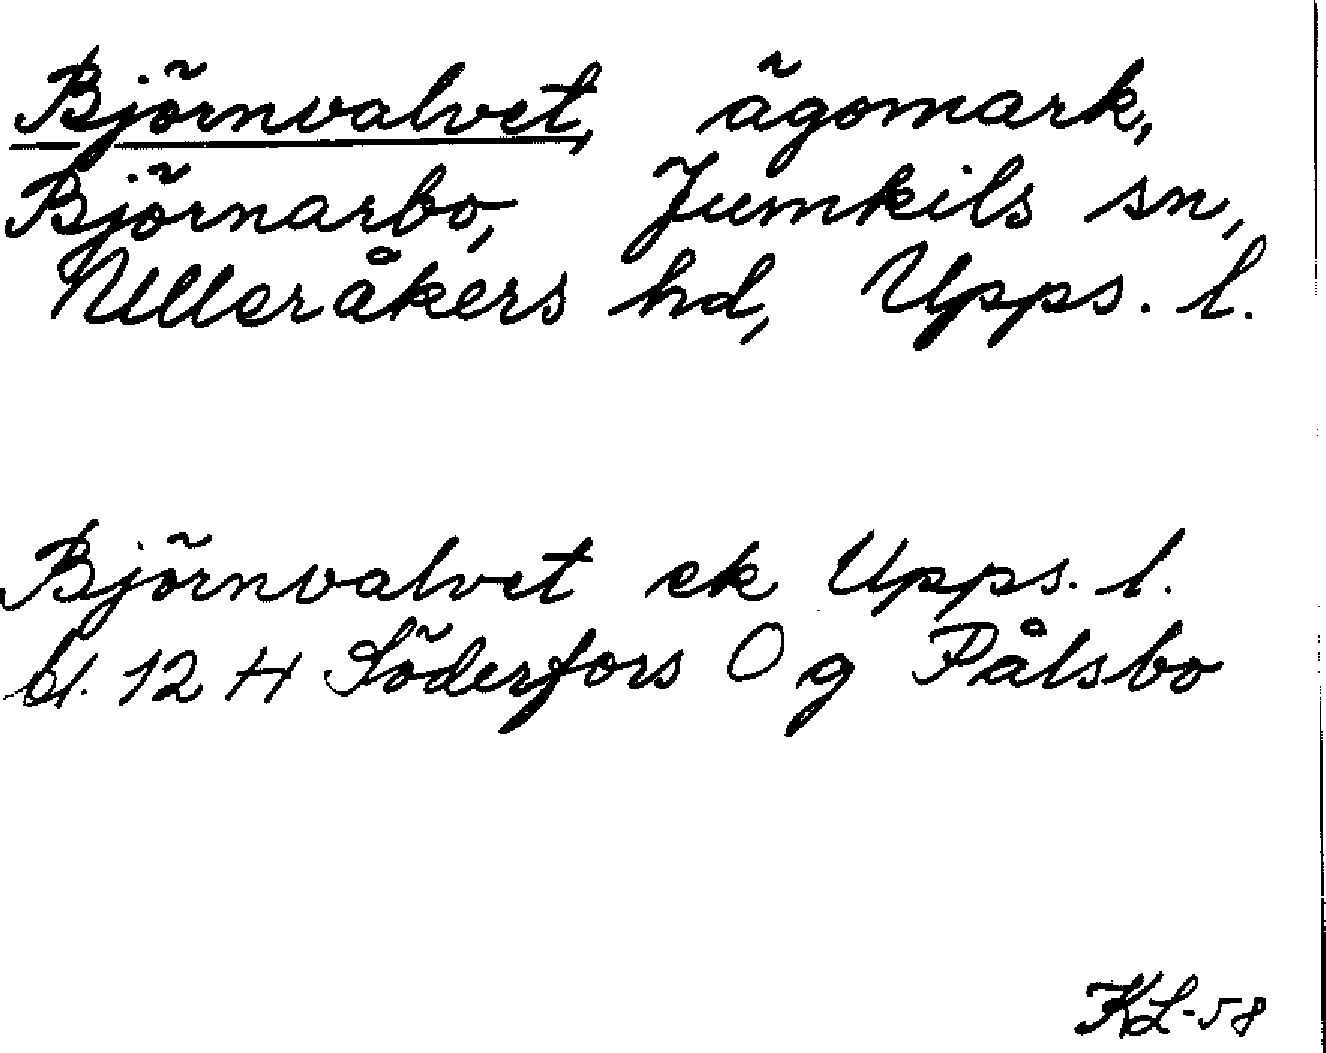 Björnvalvet, ägomark,
Björnarbo, Jumkils sn,
Ulleråkers hd, Upps. l.
Björnvalvet ek Upps. l.
bl. 12 H Söderfors O g Pålsbo
KL-58